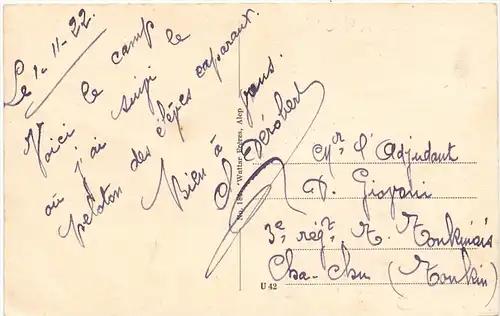 Le 1-11-22.
Voici le camp
où j'ai suivi le
peloton des élèves caporaux.
Bien à vous.
Dérobert
Wattar Frères, Alep
Mr l'Adjudant
D. Giovani
3e régt R. Tonkinais
Cha-Chu (Tonkin)
U 42